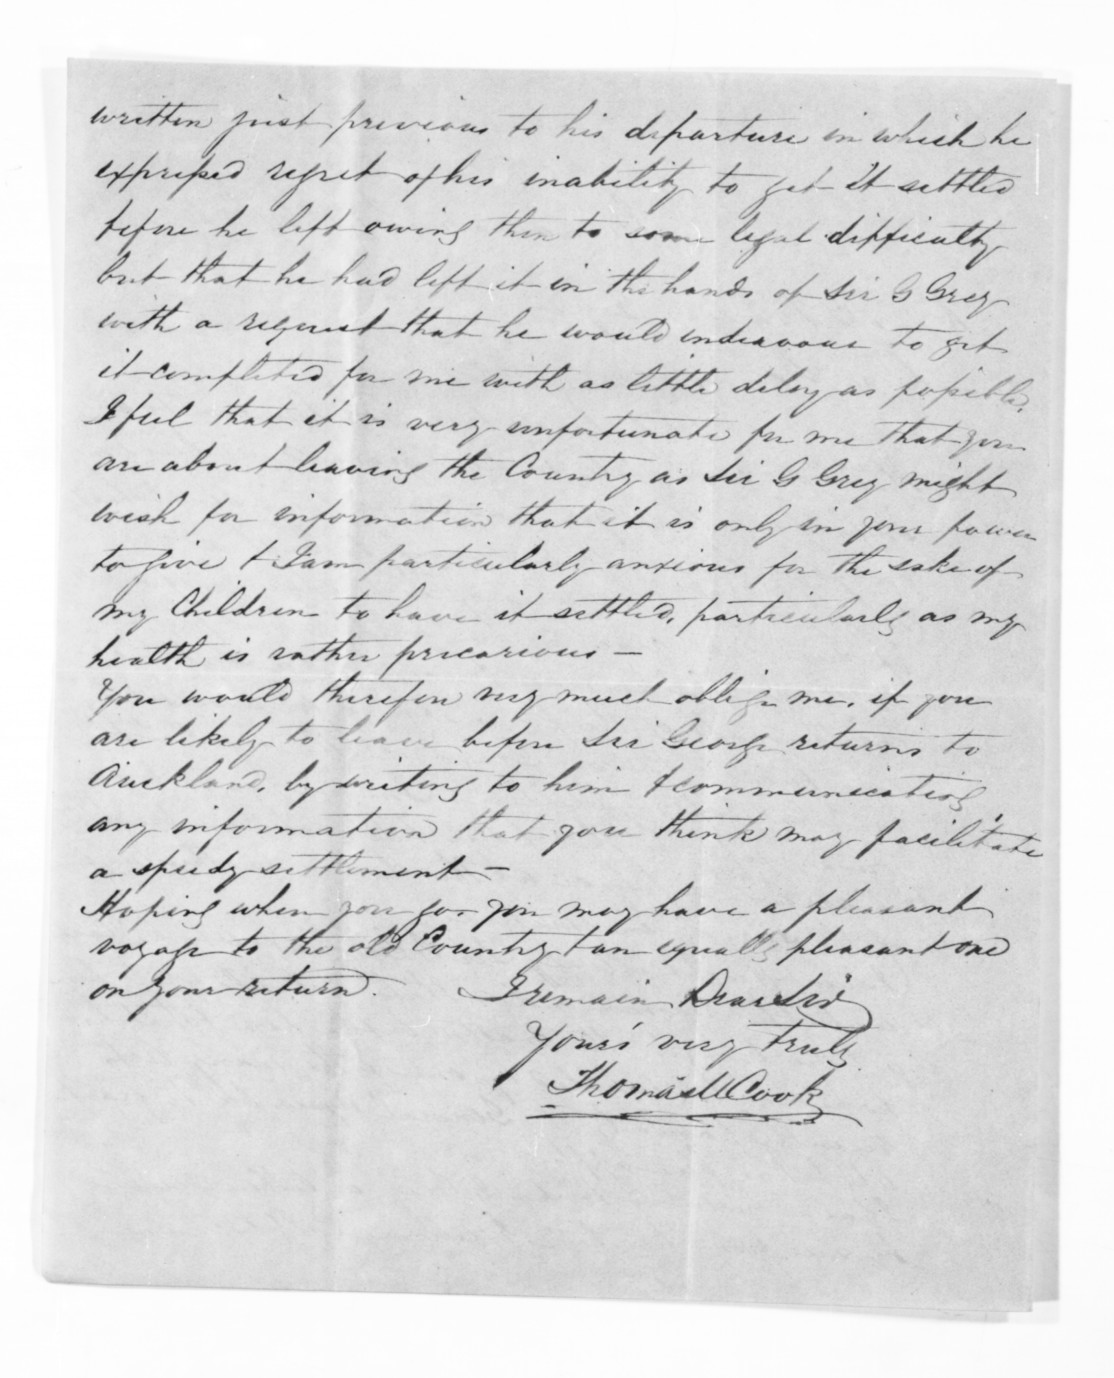 written just previous to his departure in which he
expressed regret of his inability to get it settled
before he left owing then to some legal difficulty
but that he had left it in the hands of Sir G Grey
with a request that he would endeavour to get
it completed for me with as little delay as possible.
I feel that it is very unfortunate for me that you
are about leaving the Country as Sir G Grey might
wish for information that it is only in your power
to give & I am particularly anxious for the sake of
my Children to have it settled, particularly as my
health is rather precarious —
You would therefore very much oblige me, if you
are likely to leave before Sir George returns to
Auckland, by writing to him & communicating
any information that you think may facilitate
a speedy settlement —
Hoping when you go. you may have a pleasant
voyage to the old Country & an equally pleasant one
on your return. I remain Dear Sir
Your's very truly
Thomas U Cook